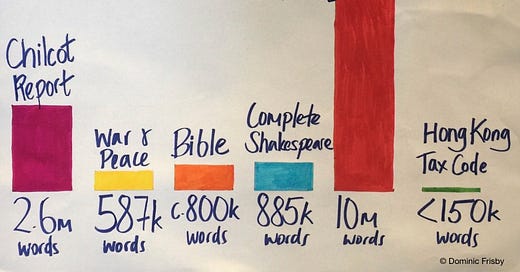 Chilcot
Report
2.6m
words
War &
Peace
587k
words
Bible
c.800k
words
Complete
Shakespeare
885k
words
10m
words
Hong Kong
Tax Code
<150k
words
© Dominic Frisby